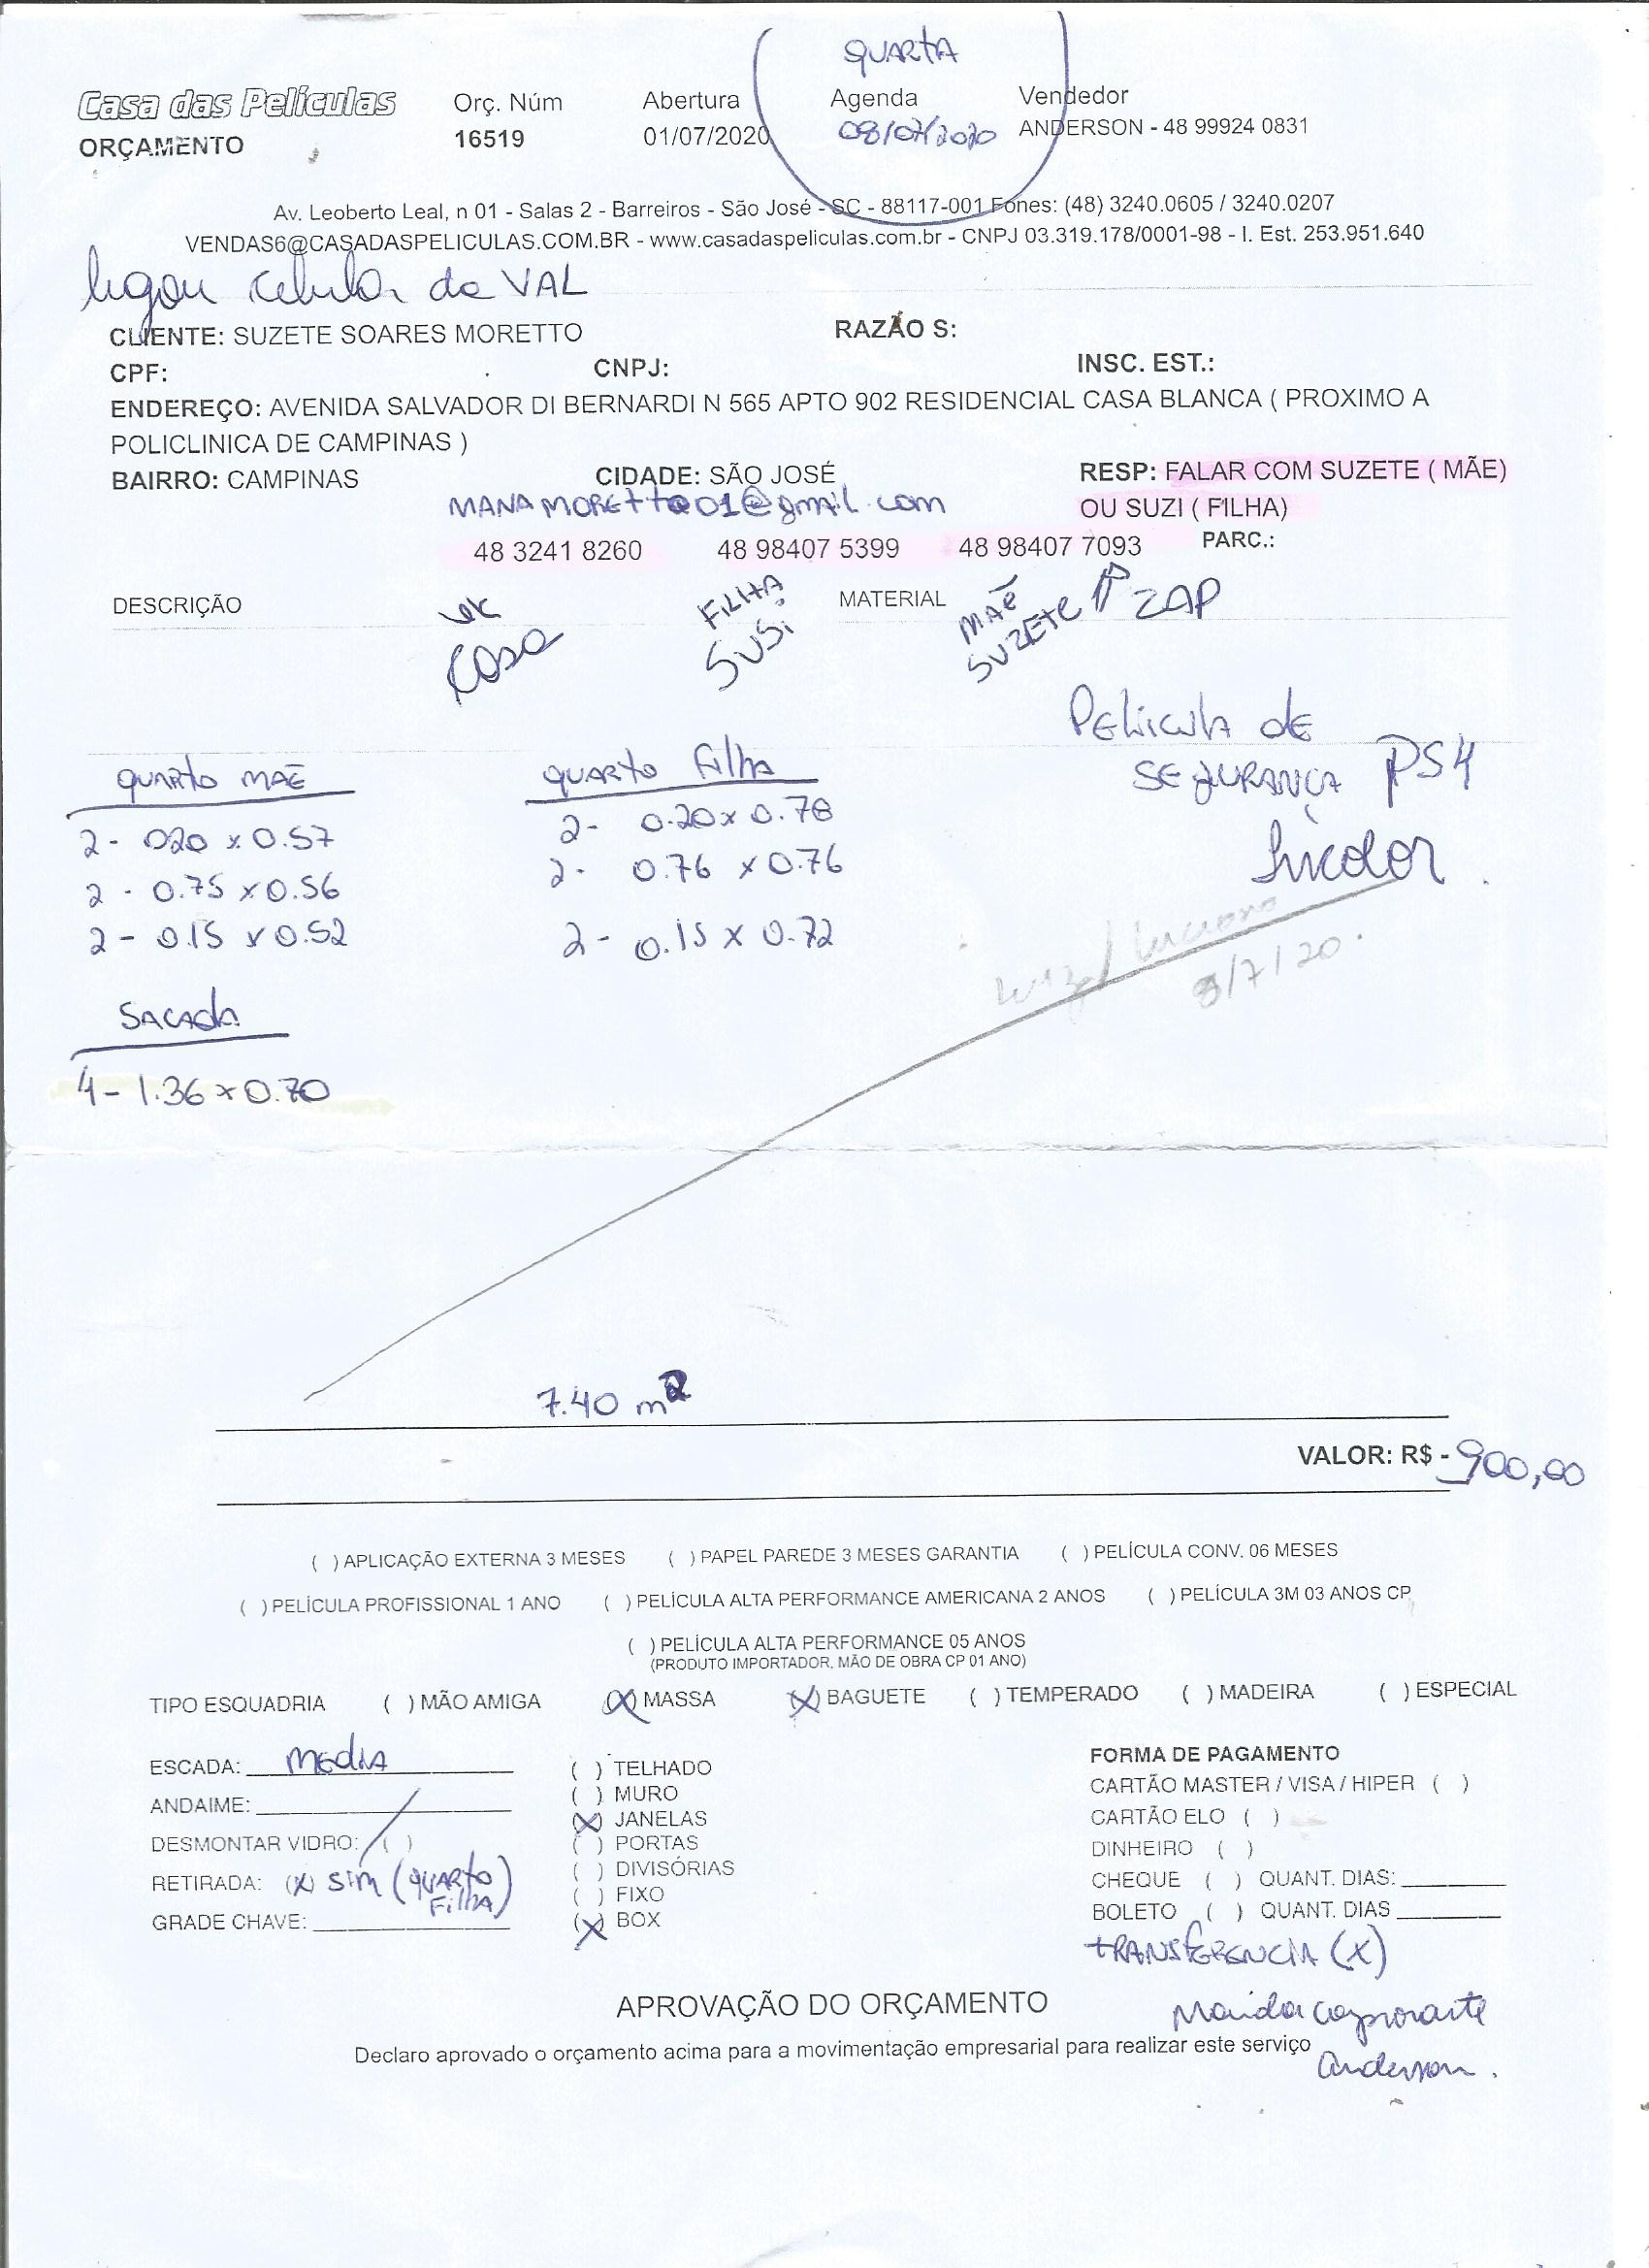 QUARTA
Casa das Películas Orç. Núm Abertura Agenda Vendedor
ORÇAMENTO 16519 01/07/2020 08/07/2020 ANDERSON - 48 99924 0831
Av. Leoberto Leal, n 01 - Salas 2 - Barreiros - São José - SC - 88117-001 Fones: (48) 3240.0605 / 3240.0207
VENDAS6@CASADASPELICULAS.COM.BR - www.casadaspeliculas.com.br - CNPJ 03.319.178/0001-98 - I. Est. 253.951.640
ligou celular da VAL
CLIENTE: SUZETE SOARES MORETTO RAZÃO S:
CPF: CNPJ: INSC. EST.:
ENDEREÇO: AVENIDA SALVADOR DI BERNARDI N 565 APTO 902 RESIDENCIAL CASA BLANCA ( PROXIMO A
POLICLINICA DE CAMPINAS )
BAIRRO: CAMPINAS CIDADE: SÃO JOSÉ RESP: FALAR COM SUZETE ( MÃE)
OU SUZI ( FILHA)
MANAMORETTO01@gmail.com
48 3241 8260 48 98407 5399 48 98407 7093 PARC.:
DESCRIÇÃO MATERIAL
CASA
FILHA SUSI
MAE SUZETE ZAP
PELICULA DE
SEGURANÇA PS4
Incolor
QUARTO MAE QUARTO Filha
2- 020 x 0.57 2- 0.20 x 0.78
2 - 0.75 x 0.56 2- 0.76 x 0.76
2 - 0.15 x 0.52 2- 0.15 x 0.72
Luiz / Luciano
8/7/20
SACADA
4 - 1.36 x 0.70
7.40 m2
VALOR: R$ - 900,00
( ) APLICAÇÃO EXTERNA 3 MESES ( ) PAPEL PAREDE 3 MESES GARANTIA ( ) PELÍCULA CONV. 06 MESES
( ) PELÍCULA PROFISSIONAL 1 ANO ( ) PELÍCULA ALTA PERFORMANCE AMERICANA 2 ANOS ( ) PELÍCULA 3M 03 ANOS CP
( ) PELÍCULA ALTA PERFORMANCE 05 ANOS
(PRODUTO IMPORTADOR, MÃO DE OBRA CP 01 ANO)
TIPO ESQUADRIA ( ) MÃO AMIGA (X) MASSA (X) BAGUETE ( ) TEMPERADO ( ) MADEIRA ( ) ESPECIAL
ESCADA: MEDIA
ANDAIME:
DESMONTAR VIDRO: ( )
RETIRADA: (X) SIM (QUARTO Filha)
GRADE CHAVE:
( ) TELHADO
( ) MURO
(X) JANELAS
( ) PORTAS
( ) DIVISÓRIAS
( ) FIXO
(X) BOX
FORMA DE PAGAMENTO
CARTÃO MASTER / VISA / HIPER ( )
CARTÃO ELO ( )
DINHEIRO ( )
CHEQUE ( ) QUANT. DIAS:
BOLETO ( ) QUANT. DIAS
TRANSFERENCIA (X)
APROVAÇÃO DO ORÇAMENTO
Declaro aprovado o orçamento acima para a movimentação empresarial para realizar este serviço
Anderson.